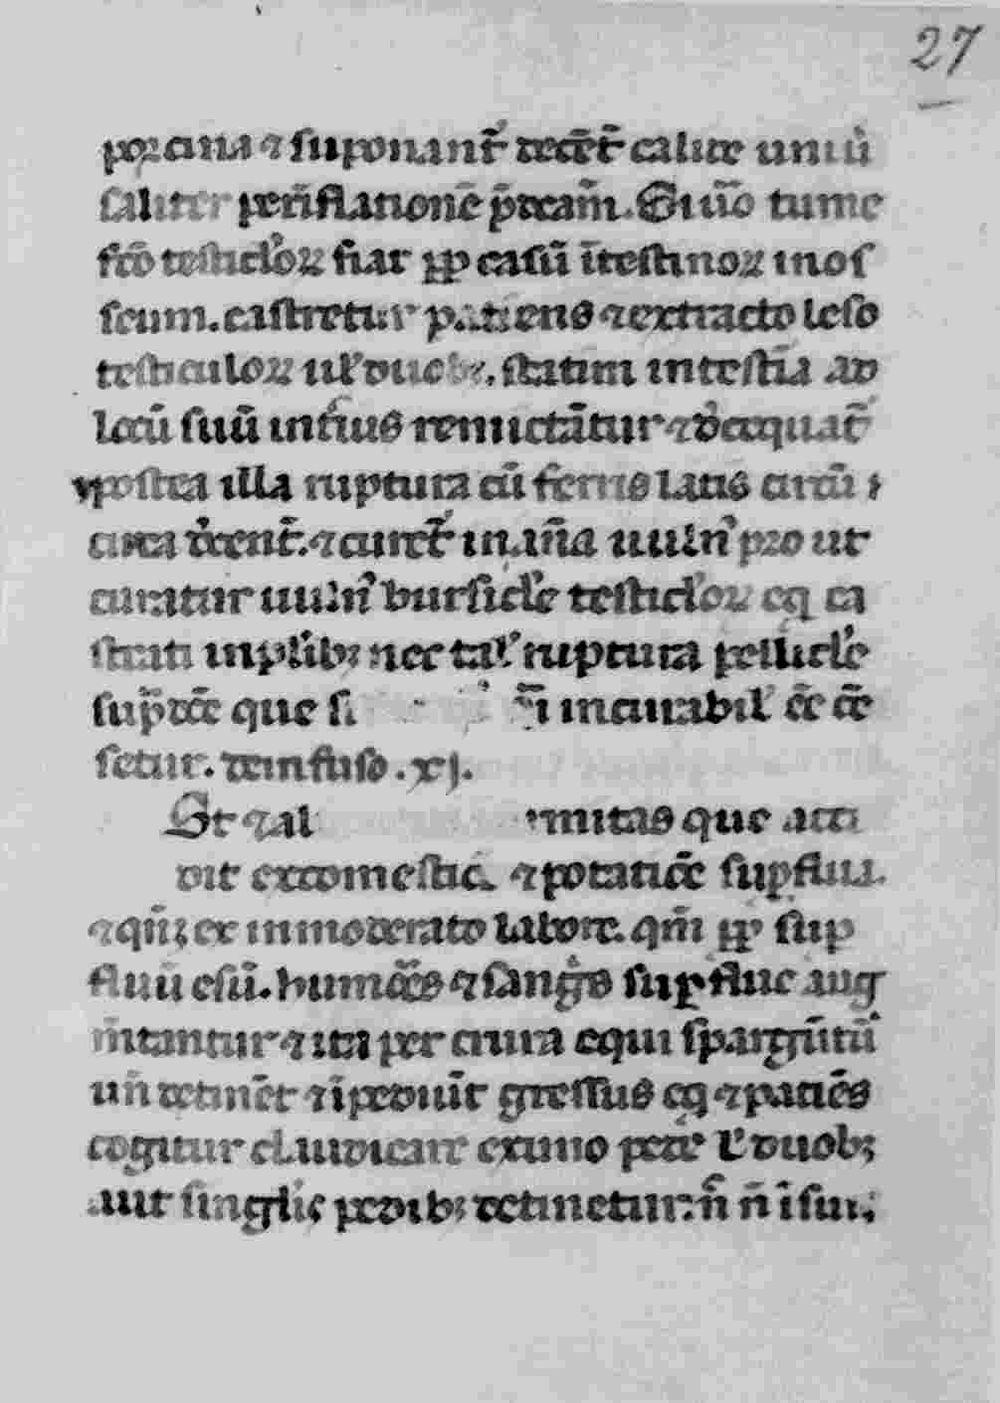 27
porcina ⁊ suponant᷑ decēt᷑ calide uniu᷑
saliter per īflationē p̄dcam̄. Si u̅o tume
fc̄o testiclo᷑ꝝ fiat ꝓp casū ītestinoꝝ in os
seum. castretur patiens ⁊ extracto leso
testiculoꝝ ul᷑ duobꝫ. statim intestīa ad
locū suū int᷑ius remictātur ⁊ dcoquat᷑
postea illa ruptura cū ferris latis circū
circa dcent᷑. ⁊ curet᷑ in ān̄a uuln᷑ pro ut
curatur uuln᷑ bursicl᷑e testiclo᷑ꝝ eq̄ ca
strati in plib᷑ꝫ nec tal᷑ ruptura pellicl᷑e
sup̄dc̄e que si incurabil᷑ ēē cē
setur. de infuso .xj.
St ⁊ al mitas que acci
dit ex comestiō ⁊ potatiōe suꝑflua.
⁊ qn̄ꝫ ex inmoderato labore. qm̄ ꝓp suꝑ
fluū esū. humōes ⁊ sangs suꝑflue aug
m̄tantur ⁊ ita per crura equi spargūtū᷑
un̄ detinēt ⁊ īpediūt gressus eq̄ ⁊ patiēs
cogitur claudicare ex uno pede l᷑ duobꝫ
aut singlis pedibꝫ detinetur. n̄ n̄ i sui